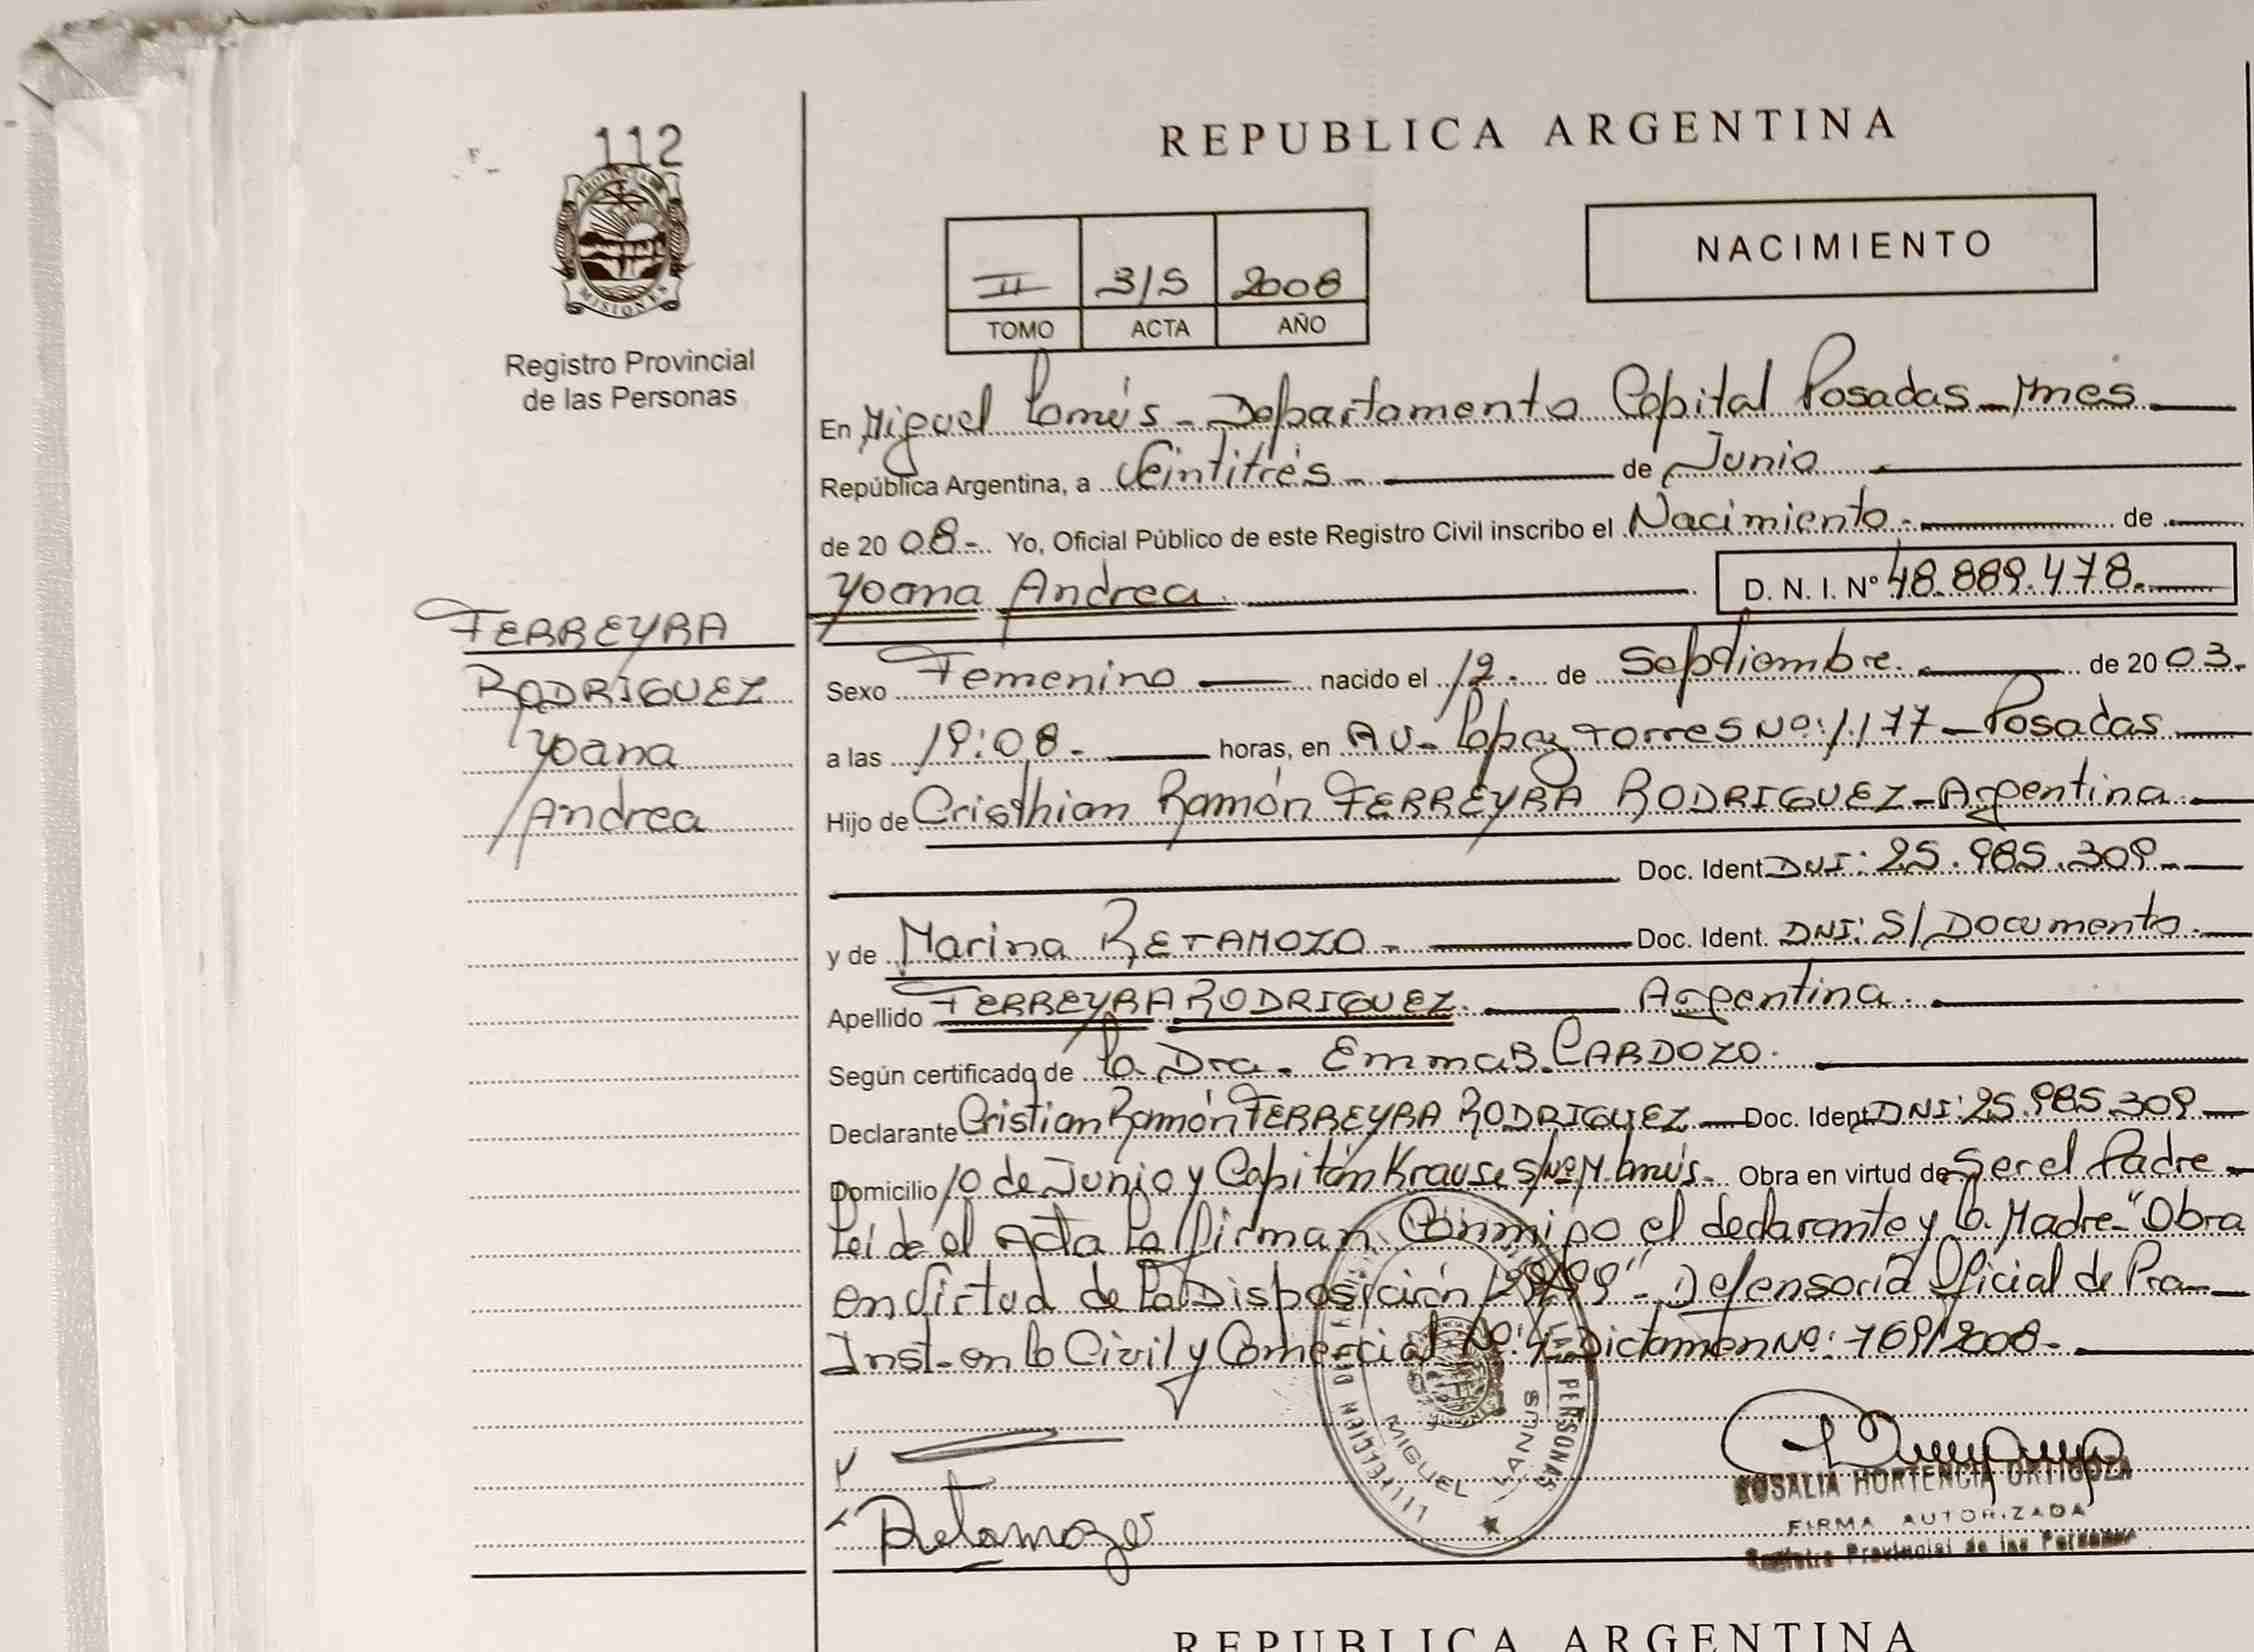 112
REPUBLICA ARGENTINA
PROVINCIA DE
MISIONES
Registro Provincial
de las Personas
II 315 2008
TOMO ACTA AÑO
NACIMIENTO
En Miguel Lanús - Departamento Capital Posadas - Mnes
República Argentina, a Veintitrés - de Junio
de 20 08 - Yo, Oficial Público de este Registro Civil inscribo el Nacimiento - de
Yoana Andrea D. N. I. Nº 48.889.478.
FERREYRA
RODRIGUEZ
Yoana
Andrea
Sexo Femenino nacido el 12 - de Septiembre. de 20 03.
a las 19:08 - horas, en AV- López Torres Nº: 1.177 - Posadas
Hijo de Cristhian Ramón FERREYRA RODRIGUEZ - Argentina
Doc. Ident DNI: 25.985.309 -
y de Marina RETAMOZO - Doc. Ident. DNI: S/Documento.
Apellido FERREYRA RODRIGUEZ. Argentina.
Según certificado de la Dra. Emma B. CARDOZO.
Declarante Cristian Ramón FERREYRA RODRIGUEZ - Doc. Ident DNI: 25.985.309
Domicilio 10 de Junio y Capitán Krause S/Nº M. Lanús - Obra en virtud de Ser el Padre -
Leída el Acta La firman Conmigo el declarante y la Madre - "Obra
en Virtud de la Disposición /99" - Defensoría Oficial de Pra -
Inst - en lo Civil y Comercial Nº: 4 - Dictamen Nº: 769/2008 -
LAS PERSONAS
MIGUEL LANUS
Retamozo
ROSALIA HORTENCIA ORTIGOZA
FIRMA AUTORIZADA
Registro Provincial de las Personas
REPUBLICA ARGENTINA